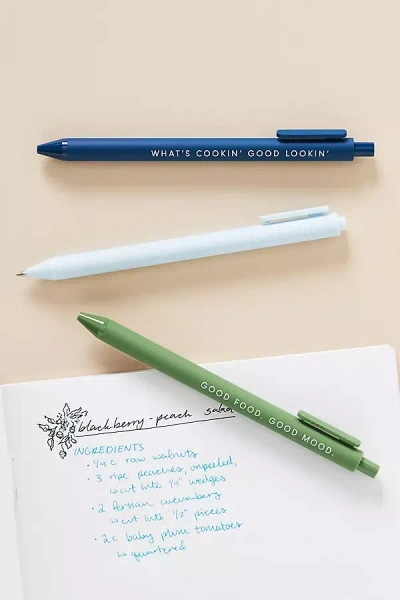 WHAT'S COOKIN' GOOD LOOKIN'
GOOD FOOD. GOOD MOOD.
blackberry-peach salad
INGREDIENTS
• 1/4 c raw walnuts
• 3 ripe peaches, unpeeled,
↳ cut into 1/4" wedges
• 2 Persian cucumbers
↳ cut into 1/2" pieces
• 2 c baby plum tomatoes
↳ quartered